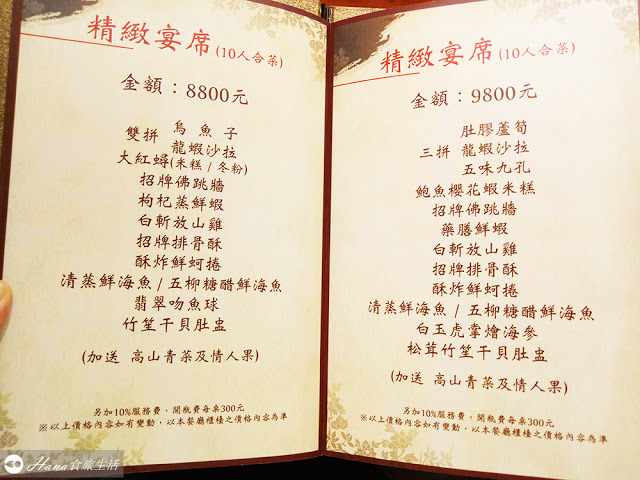 精緻宴席(10人合菜)
金額：8800元
雙拼 烏魚子
龍蝦沙拉
大紅蟳(米糕/冬粉)
招牌佛跳牆
枸杞蒸鮮蝦
白斬放山雞
招牌排骨酥
酥炸鮮蚵捲
清蒸鮮海魚/五柳糖醋鮮海魚
翡翠吻魚球
竹笙干貝肚盅
(加送 高山青菜及情人果)
另加10%服務費，開瓶費每桌300元
※以上價格內容如有變動，以本餐廳櫃檯之價格內容為準
精緻宴席(10人合菜)
金額：9800元
肚膠蘆筍
三拼 龍蝦沙拉
五味九孔
鮑魚櫻花蝦米糕
招牌佛跳牆
藥膳鮮蝦
白斬放山雞
招牌排骨酥
酥炸鮮蚵捲
清蒸鮮海魚/五柳糖醋鮮海魚
白玉虎掌燴海參
松茸竹笙干貝肚盅
(加送 高山青菜及情人果)
另加10%服務費，開瓶費每桌300元
※以上價格內容如有變動，以本餐廳櫃檯之價格內容為準
Hana食旅生活